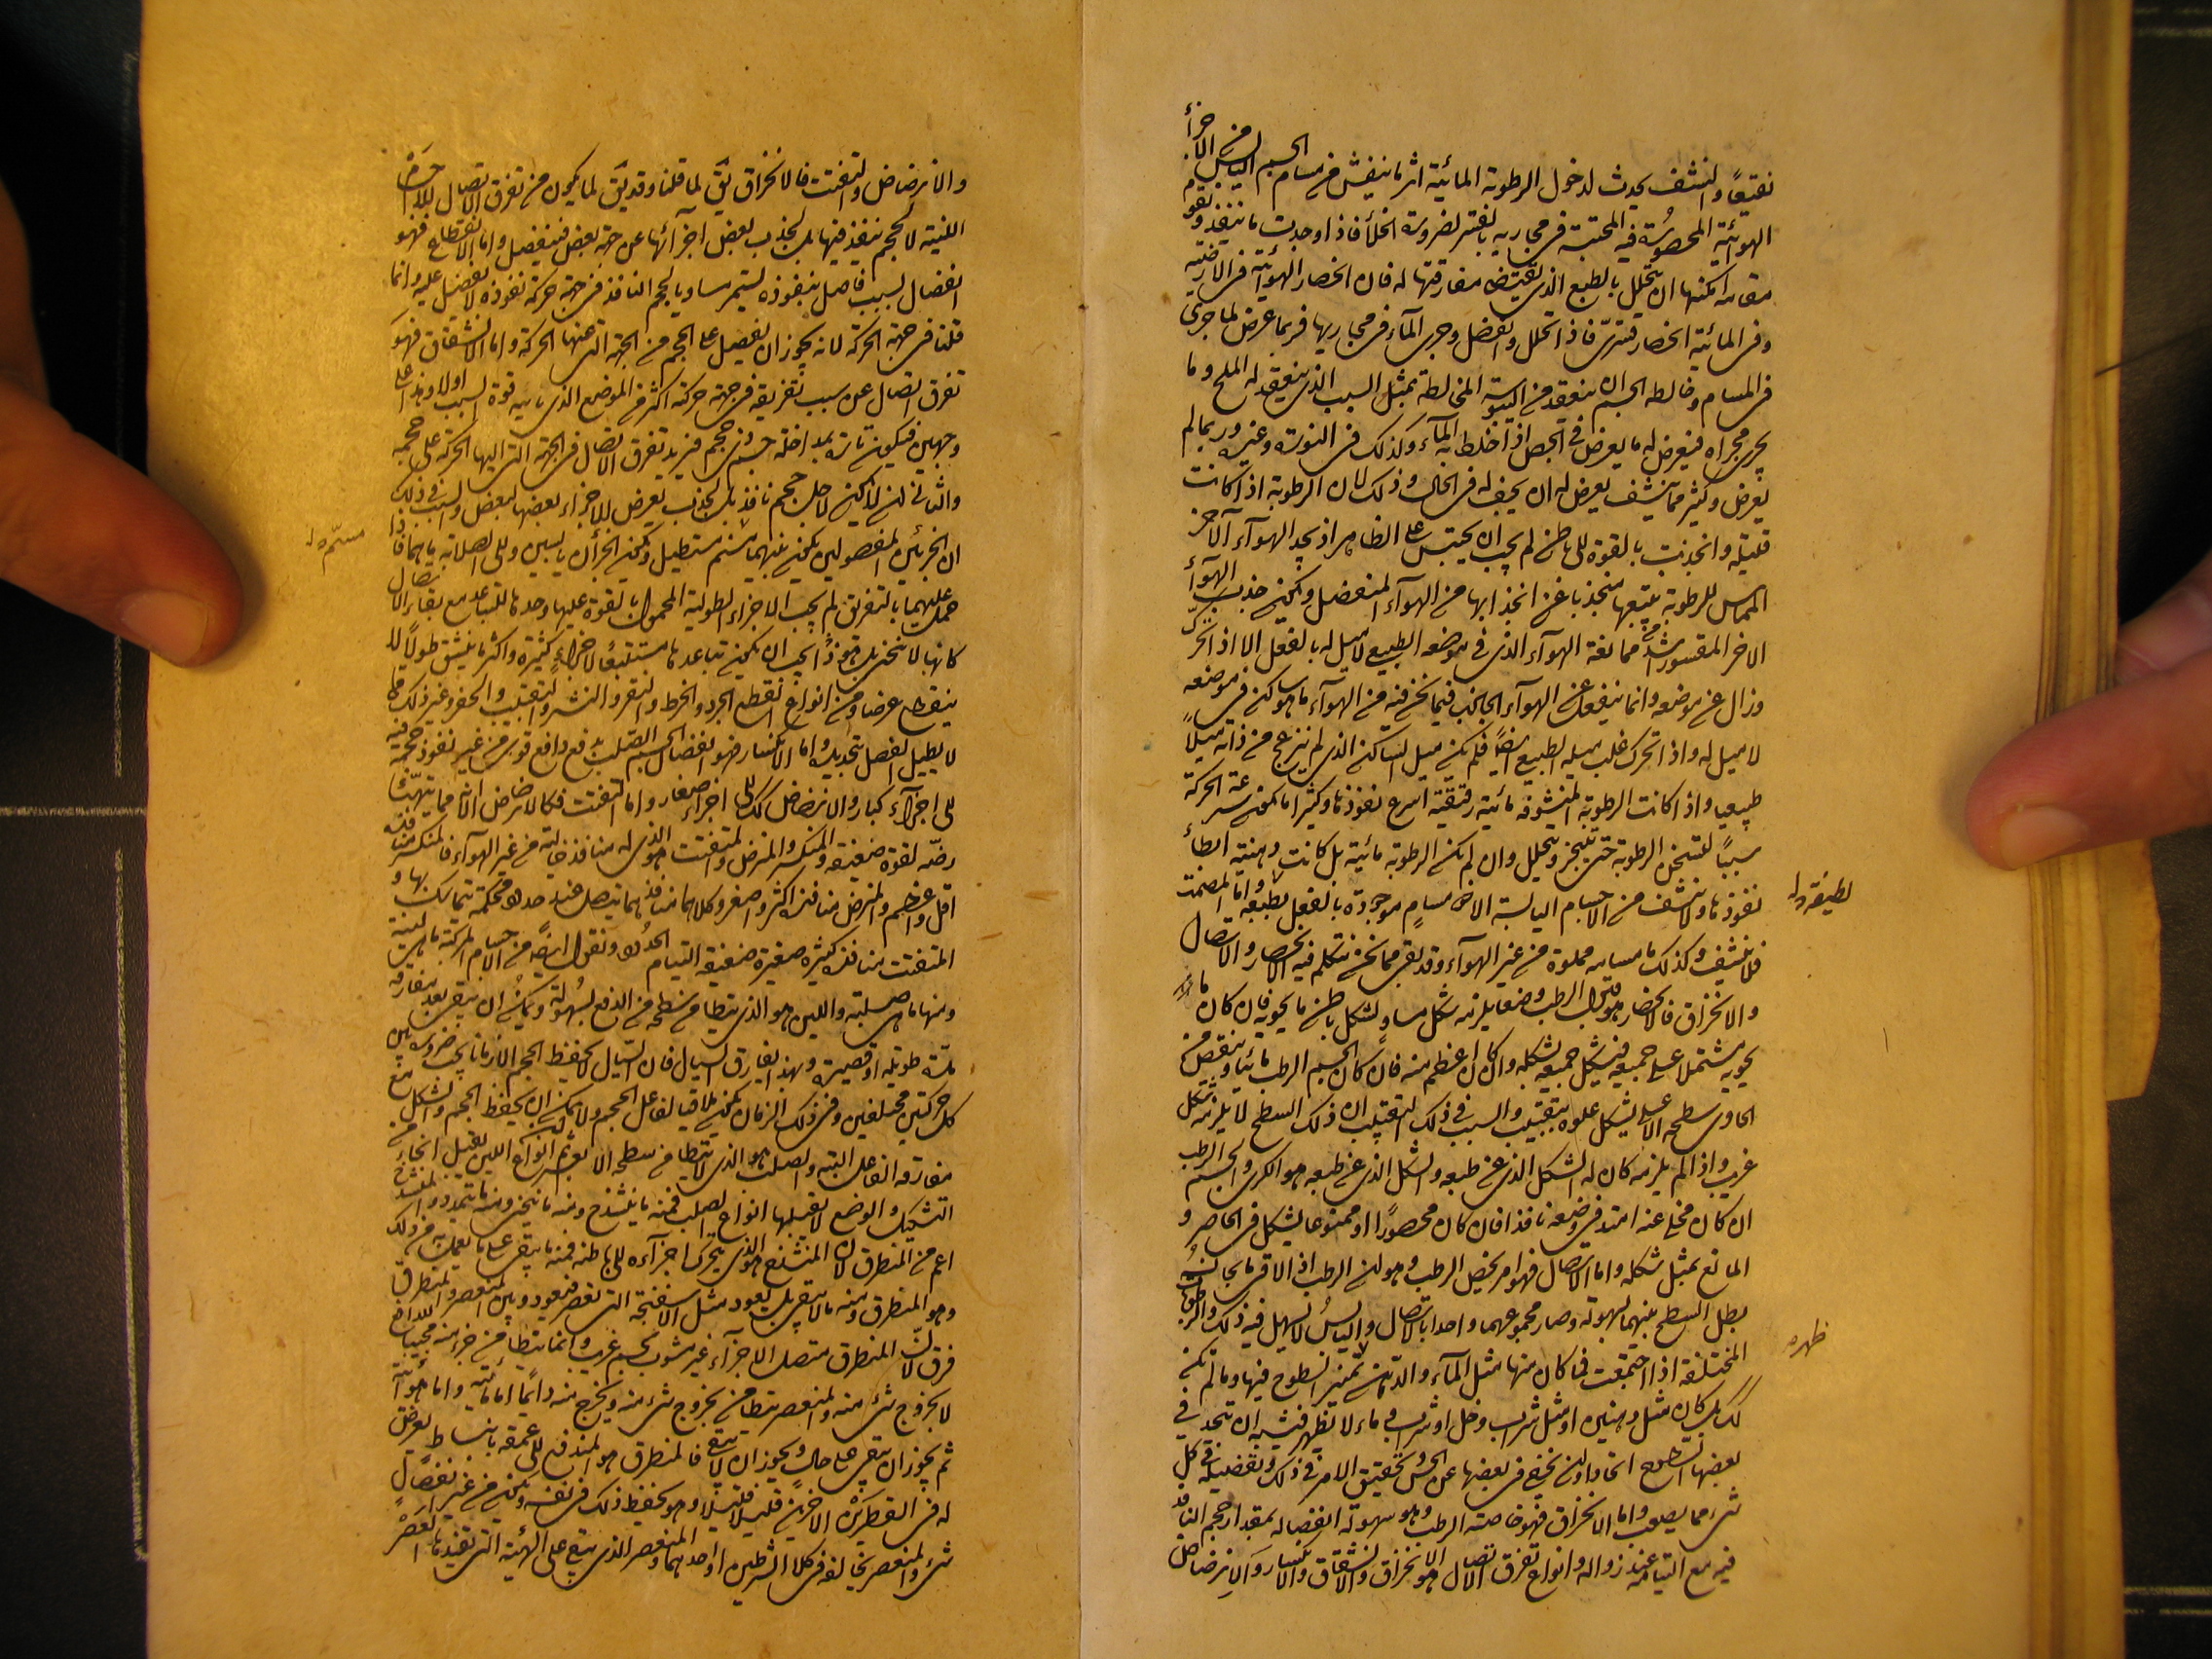 نقيعًا والنشف يحدث لدخول الرطوبة المائية اثر ما ينفش من مسام الجسم اليابس من الاجزأ
الهوائية المحصورة فيه المحتبسة في مجاريه بالقسر لضرورة الخلأ فاذا وجدت ما ينفذ وتقوم
مقامه امكنها ان يتحلل بالطبع الذي يقتضي مفارقتها له فان انحصار الهوائية في الارضية
وفي المائية انحصار قسري فاذا تحلل وانفصل وجرى الماء في مجاريها فربما عرض لما جرى
في المسام وخالطه الجسم ان ينعقد من اليبوسة المخالطة بمثل السبب الذي ينعقد له الملح وما
يجري مجراه فيعرض له ما يعرض في الجص اذا اختلط به الماء وكذلك في النورة وغيره وربما لم
يعرض وكثير مما ينشف يعرض له ان يجف له في الحال وذلك لان الرطوبة اذا كانت
قليلة وانجذبت بالقوة الى باطن لم يجب ان يحتبس على الظاهر اذ يجد الهوآء الآخر
المماس للرطوبة يتبعها منجذبا عن انجذابها من الهوآء المنفصل ويكون جذب الهوآء
الاخر المقسور اشد من ممانعة الهوآء الذي في موضعه الطبيعي لا ميل له بالفعل الا اذا تحرك
وزال عن موضعه وانما ينفعل عن الهوآء الجاذب فيما نحن فيه من الهوآء ما هو ساكن في موضعه
لا ميل له واذا تحرك غلب ميله الطبيعي ايضًا فلم يكن ميل الساكن الذي لم ينزعج من ذاته ميلًا
طبيعيا واذا كانت الرطوبة المنشوفة مائية رقيقة اسرع نفوذها وكثيرا ما يكون سرعة الحركة
سببًا لتسخن الرطوبة حتى تتبخر وتتحلل وان لم يكن الرطوبة مائية بل كانت دهنية ابطأ
نفوذها ولا نشف من الاجسام اليابسة الا في مسام موجودة بالفعل بطبعه واما المصمت
فلا ينشف وكذلك ما مسامه مملوة من غير الهوآء وقد بقي مما نحن نتكلم فيه الانحصار والاتصال
والانخراق فالانحصار هو قبول الرطب وضعا يلزمه شكل مساو لشكل باطن ما يحويه فان كان ما
يحويه مشتملا على جميعه فيشكل جميعه بشكله وان كان اعظم منه فان كان الجسم الرطب مائيا وينقص من
الحاوي سطحه الاعلى يشكل علوه بتقبيب والسبب في ذلك التقبيب ان ذلك السطح لا يلزمه شكل
غريب واذا لم يلزمه كان له الشكل الذي عن طبعه والشكل الذي عن طبعه هو الكري والجسم الرطب
ان كان مخلى عنه امتد في وضعه نافذا فان كان محصورًا او ممنوعا يشكل في الحاصر و
المانع بمثل شكله واما الاتصال فهو امر يخص الرطب وهو لان الرطب اذا لاقى ما يجانسه
بطل السطح بينهما بسهولة وصار مجموعهما واحدا بالاتصال واليابس لا يسهل فيه ذلك والرطوبات
المختلفة اذا اجتمعت فما كان منها مثل المآء والدهن تميز السطوح فيها وما لم يكن
كذلك بل كان مثل دهنين او مثل شراب وخل او شراب وماء لا تظهر فيشبه ان تتحد في
بعضها السطوح اتحادا وان يخفى في بعضها عن الحس وتحقيق الامر في ذلك وتفصيله في كل
شيء مما يصعب واما الانخراق فهو خاصية الرطب وهو سهولة انفصاله بمقدار حجم النافذ
فيه مع التيامه عند زواله وانواع تفرق الاتصال هو الانخراق والانشقاق والانكسار والارضاض
لطيفة وله
ظهره
والارضاض والتفتت فالانخراق يق لما قلنا وقد يق لما يكون من تفرق الاتصال للاجسام
اللينة لا لحجم ينفذ فيها بل لجذب بعض اجزائها عن جهة بعض فينفصل واما الانقطاع فهو
انفصال بسبب فاصل بنفوذه يستمر مساويا لحجم النافذ في جهة حركة نفوذه لا يفضل عليه وانما
قلنا في جهة الحركة لانه يجوز ان يفضل على الحجم من الجهة التي عنها الحركة واما الانشقاق فهو
تفرق اتصال عن سبب تفريقه في جهة حركته اكثر من الموضع الذي يأتيه قوة السبب اولا وهذا على
وجهين فيكون تارة بمداخلة جسم ذي حجم فيزيد تفرق الاتصال في الجهة التي اليها الحركة على حجمه
والثاني ان لا يكون لاجل حجم نافذ بل لجذب يعرض للاجزاء بعضها لبعض والسبب في ذلك
ان الجزئين المفصولين يكون بينهما جسم مستطيل ويكون الجزأن يابسين والى الصلابة ما هما فاذا
حمل عليهما بالتفريق لم يجب الاجزاء الطولية المحمول بالقوة عليها وحدها للتباعد مع بقاء الاتصال
كانها لا تنحني بل هو ذا يجب ان يكون تباعدها مستتبعًا لاجزاء كثيرة واكثر ما ينشق طولًا لا
ينقطع عرضا ومن انواع القطع الجرد والخرط والنقر والنشر والتثقيب والحفر وغير ذلك مما
لا يطيل الفصل بتحديده واما الانكسار فهو انفصال الجسم الصلب بدفع دافع قوي من غير نفوذ حجمه فيه
الى اجزآء كبار والارضاض كذلك الى اجزاء صغار واما التفتت فكالارضاض الا انه مما يتهيأ
رضه لقوة ضعيفة والمنكسر والمرض والمتفتت هو الذي له منافذ خالية من غير الهوآء فالمنكسر منافذه
اقل واعظم والمرض منافذه اكثر واصغر وكلاهما منافذهما يتصل عند حدود محكمة تتماسك بها و
المتفتت منافذه كثيرة صغيرة ضعيفة التيام الحدود ونقول ايضًا من الاجسام المركبة ما هي لينة
ومنها ما هي صلبة واللين هو الذي يتطامن سطحه من الدفع بسهولة ويمكن ان يبقى بعد مفارقه
مدة طويلة او قصيرة وبهذا يفارق السيال فان السيال لا يحفظ الحجم الا زمانا يجب ضرورة بين
كل حركتين مختلفين وفي ذلك الزمان يكون ملاقيا لفاعل الحجم ولا يمكن ان يحفظ الحجم والشكل مع
مفارقة الفاعل البتة والصلب هو الذي لا يتطامن سطحه الا بعسر ثم انواع اللين يقبل انحاء من
التشكيل والوضع لا يقبلها انواع الصلب فمنه ما ينشدخ ومنه ما ينحني ومنه ما يتمدد والمنشدخ
اعم من المنطرق لان المنشدخ هو الذي يتحرك اجزآءه الى باطنه فمنه ما يبقى على ما يعمل به من ذلك
وهو المنطرق ومنه ما لا يبقى بل يعود مثل الاسفنجة التي تعصر فتعود وبين المنعصر والمنطرق
فرق لان المنطرق متصل الاجزآء غير مشوب بجسم غريب وانما يتطامن جزء منه مجيبا للدافع
لا بخروج شيء منه والمنعصر يتطامن بخروج شيء منه ويخرج منه دائمًا اما مائية واما هوائية
ثم يجوز ان يبقى على حاله ويجوز ان لا يبقى فالمنطرق هو المندفع الى عمقه بانبساط يعرض
له في القطرين الاخرين قليلا قليلا وهو يحفظ ذلك في نفسه ويكون من غير انفصال
شيء والمنعصر يخالفه في كلا الشرطين او احدهما والمنعصر الذي يبقى على الهيئة التي تفيدها العصر